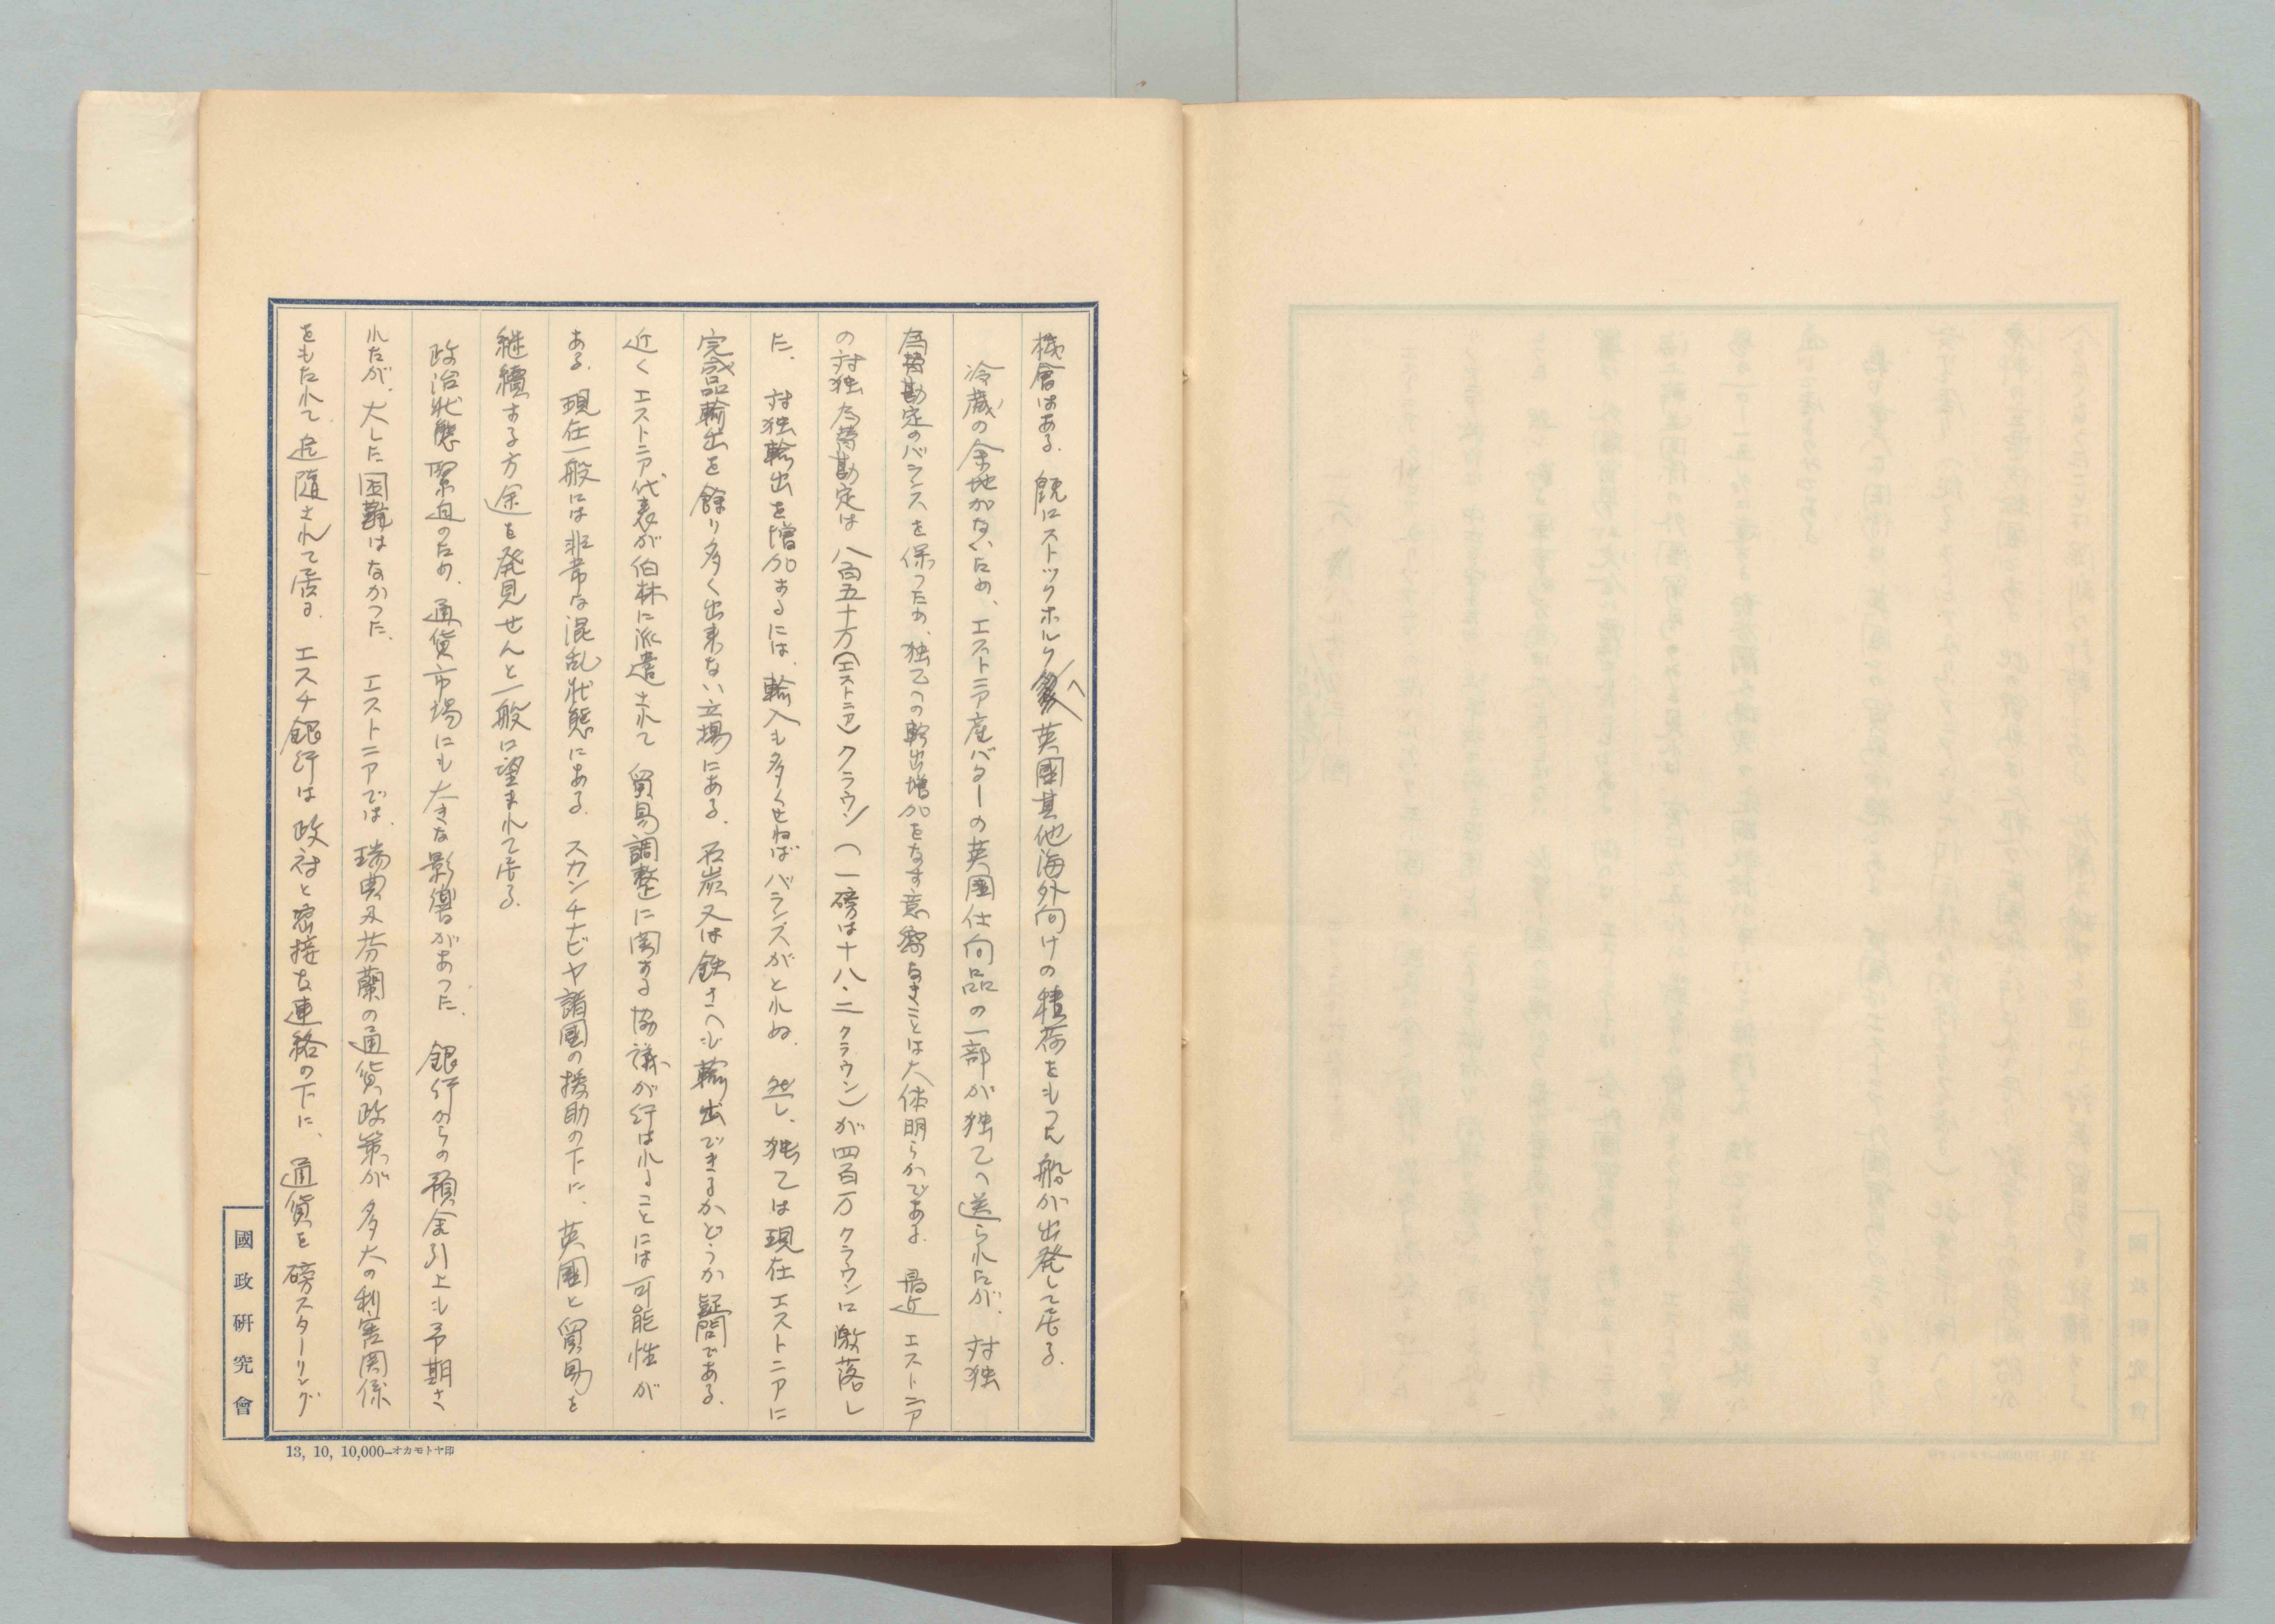 機會はある。既にストックホルク へ 英國其他海外向けの積荷をもつた船が出発して居る。
冷蔵の余地がないため、エストニア産バターの英国仕向品の一部が独乙へ送られたが、対独
為替勘定のバランスを保つため、独乙への輸出増加をなす意嚮なきことは大体明らかである。最近エストニア
の対独為替勘定は八百五十万(エストニア)クラウン(一磅は十八・二クラウン)が四百万クラウンに激落し
た。対独輸出を増加するには、輸入も多くせねばバランスがとれぬ。然し、独乙は現在エストニアに
完成品輸出を餘り多く出来ない立場にある。石炭又は鉄さへも輸出できるかどうか疑問である。
近くエストニア代表が伯林に派遣されて貿易調整に関する協議が行はれることには可能性が
ある。現在一般には非常な混乱状態にある。スカンチナビヤ諸國の援助の下に、英國と貿易を
継續する方途を発見せんと一般に望まれて居る。
政治状態緊迫のため、通貨市場にも大きな影響があつた。銀行からの預金引上も予期さ
れたが、大した困難はなかつた。エストニアでは、瑞典及芬蘭の通貨政策が多大の利害関係
をもたれて追随されて居る。エスチ銀行は政府と密接な連絡の下に、通貨を磅スターリング
國政研究會
13, 10, 10,000—オカモトヤ印